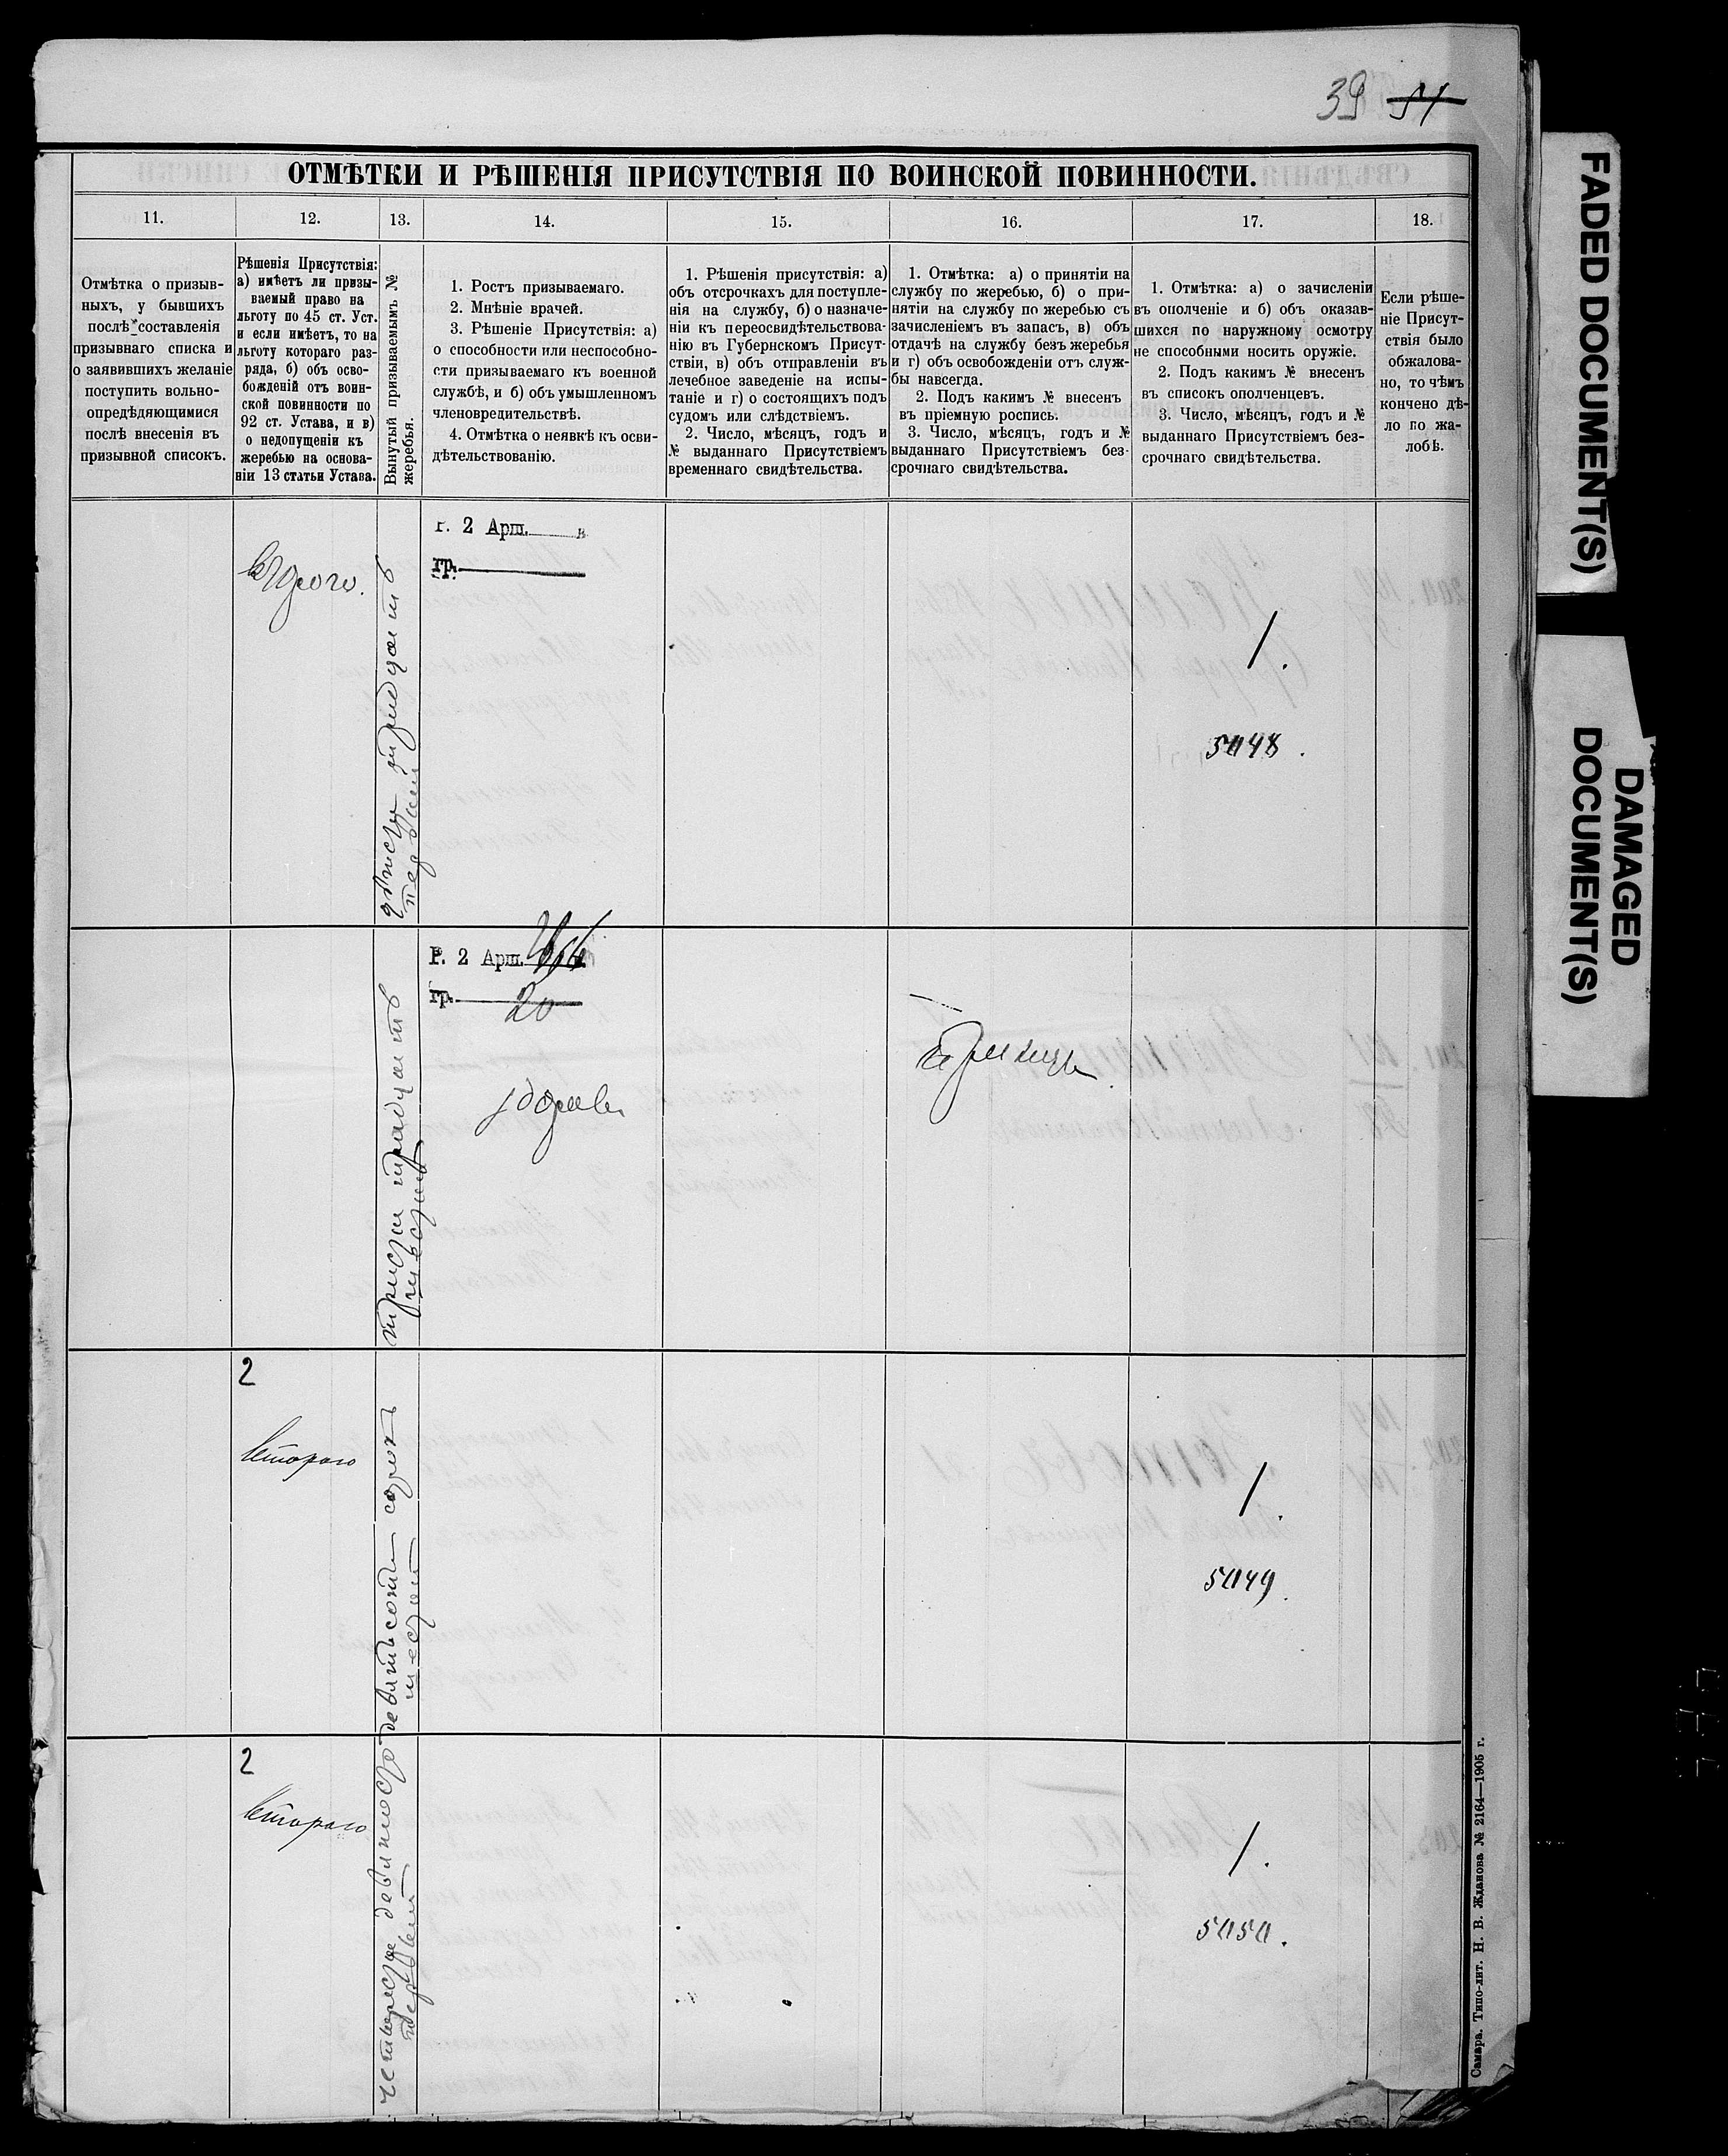 39 51
ОТМѢТКИ И РѢШЕНІЯ ПРИСУТСТВІЯ ПО ВОИНСКОЙ ПОВИННОСТИ.
11.
12.
13.
14.
15.
16.
17.
18.
Отмѣтка о призыв-
ныхъ, у бывшихъ
послѣ составленія
призывнаго списка и
о заявившихъ желаніе
поступить вольно-
опредѣдяющимися
послѣ внесенія въ
призывной списокъ.
Рѣшенія Присутствія:
а) имѣетъ ли призы-
ваемый право на
льготу по 45 ст. Уст.
и если имѣетъ, то на
льготу котораго раз-
ряда, б) объ осво-
божденій отъ воин-
ской повинности по
92 ст. Устава, и в)
о недопущеніи къ
жеребью на основа-
ніи 13 статьи Устава.
Вынутый призываемымъ №
жеребья.
1. Ростъ призываемаго.
2. Мнѣніе врачей.
3. Рѣшеніе Присутствія: а)
о способности или неспособно-
сти призываемаго къ военной
службѣ, и б) объ умышленномъ
членовредительствѣ.
4. Отмѣтка о неявкѣ къ осви-
дѣтельствованію.
1. Рѣшенія присутствія: а)
объ отсрочкахъ для поступле-
нія на службу, б) о назначе-
ніи къ переосвидѣтельствова-
нію въ Губернскомъ Присут-
ствіи, в) объ отправленіи въ
лечебное заведеніе на испы-
таніе и г) о состоящихъ подъ
судомъ или слѣдствіемъ.
2. Число, мѣсяцъ, годъ и
№ выданнаго Присутствіемъ
временнаго свидѣтельства.
1. Отмѣтка: а) о принятіи на
службу по жеребью, б) о при-
нятіи на службу по жеребью съ
зачисленіемъ въ запасъ, в) объ
отдачѣ на службу безъ жеребья
и г) объ освобожденіи отъ служ-
бы навсегда.
2. Подъ какимъ № внесенъ
въ пріемную роспись.
3. Число, мѣсяцъ, годъ и №
выданнаго Присутствіемъ без-
срочнаго свидѣтельства.
1. Отмѣтка: а) о зачисленіи
въ ополченіе и б) объ оказав-
шихся по наружному осмотру
не способными носить оружіе.
2. Подъ какимъ № внесенъ
въ списокъ ополченцевъ.
3. Число, мѣсяцъ, годъ и №
выданнаго Присутствіемъ без-
срочнаго свидѣтельства.
Если рѣше-
ніе Присут-
ствія было
обжалова-
но, то чѣмъ
кончено дѣ-
ло по жа-
лобѣ.
втораго.
двѣсти тридцать
первый
Г. 2 Арш. в
гр.
1.
5048.
триста тридцать
шестый
Р. 2 Арш.
гр. 20
здоровъ
2
втораго
девятьсотъ сорокъ
шестой
1.
5049.
2
втораго
четыреста девяносто
первый
1.
5050.
Самара. Типо-лит. Н. В. Жданова № 2164—1905 г.
FADED DOCUMENT(S)
DAMAGED
DOCUMENT(S)